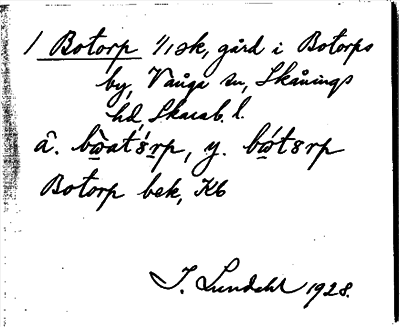 1 Botorp 1/1 sk, gård i Botorps
by, Vånga sn, Skånings
hd, Skarab. l.
Botorp bek, Kb
I. Lundahl 1928.